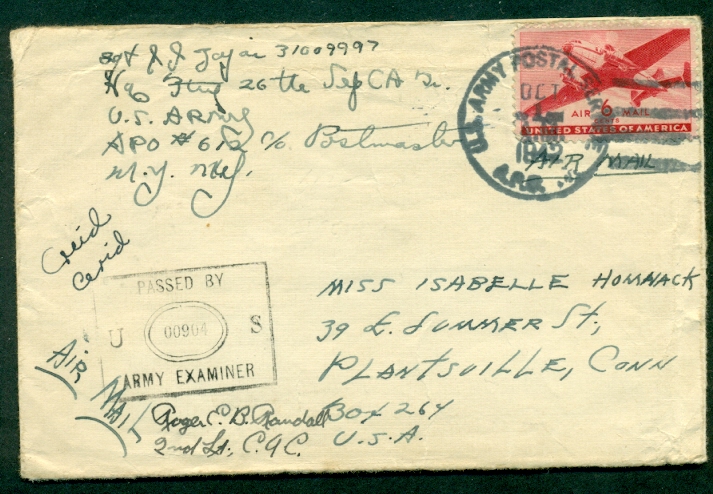 Sgt J J Jojar 31009997
Hq 26th Sep CA Bn.
U.S. Army
APO # 612 c/o Postmaster
N.Y. N.Y.
U.S. ARMY POSTAL SERVICE
OCT
1942
A.P.O.
AIR 6¢ MAIL
UNITED STATES OF AMERICA
AIR MAIL
PASSED BY
U 00904 S
ARMY EXAMINER
MISS ISABELLE HOMNACK
39 E. SUMMER St.,
PLANTSVILLE, CONN
BOX 264
U.S.A.
AIR MAIL
Roger C. B. Randall
2nd Lt. C.A.C.